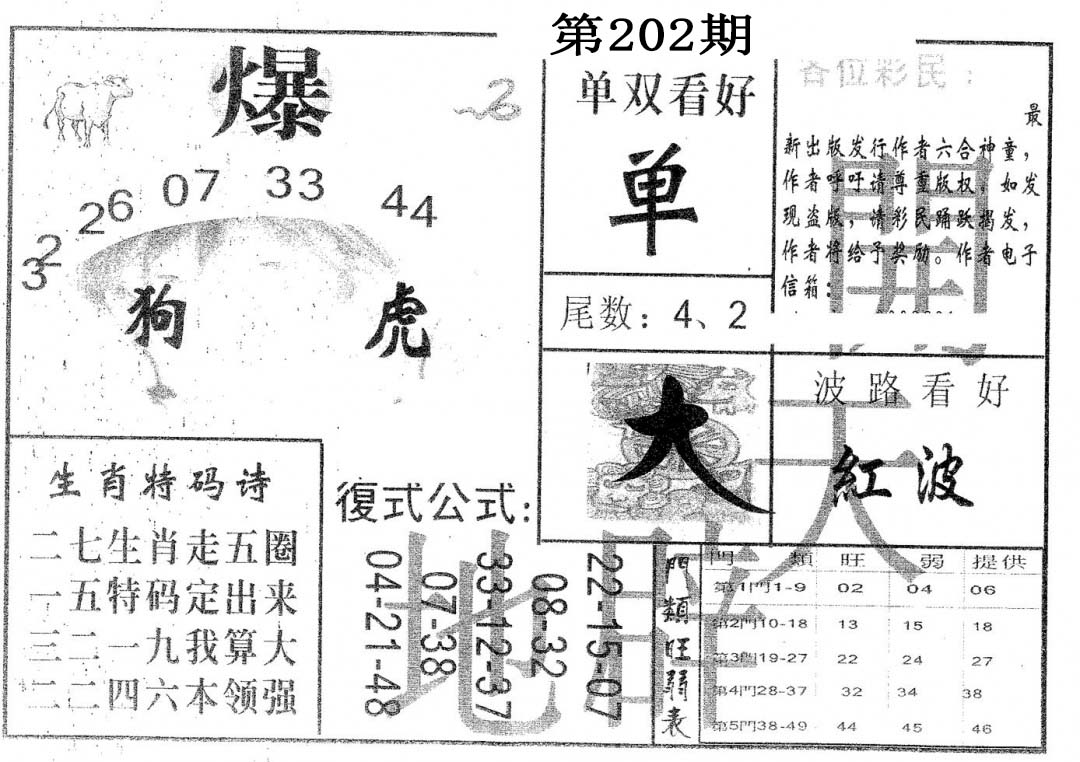 第202期
爆
32
26
07
33
44
狗 虎
单双看好
单
尾数：4、2
各位彩民：
最
新出版发行作者六合神童，
作者呼吁请尊重版权。如发
现盗版，情彩民踊跃揭发，
作者将给予奖励。作者电子
信箱：
大
波路看好
紅波
生肖特码诗
二七生肖走五圈
一五特码定出来
三二一九我算大
二二四六本领强
復式公式：
22-15-07
08-32
33-12-37
07-38
04-21-48
門類旺弱表
門 類 旺 弱 提供
第1門1-9 02 04 06
第2門10-18 13 15 18
第3門19-27 22 24 27
第4門28-37 32 34 38
第5門38-49 44 45 46